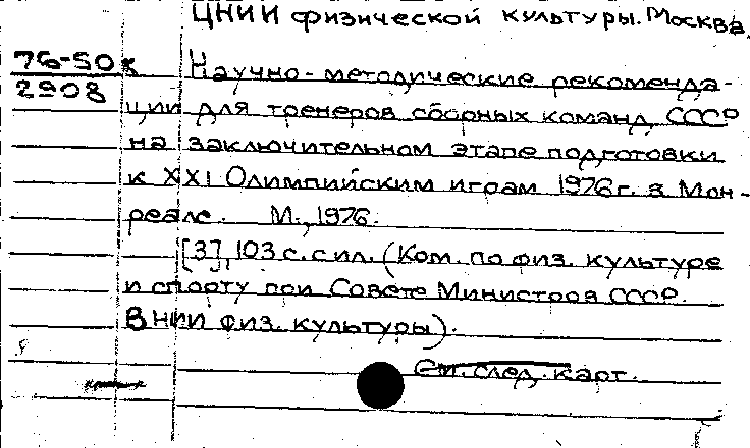 ЦНИИ физической культуры. Москва.
76-50 8
2908
Научно-методические рекоменда-
ции для тренеров сборных команд СССР
на заключительном этапе подготовки
к XXI Олимпийским играм 1976 г. в Мон-
реале. М., 1976.
[3], 103 с. с ил. (Ком. по физ. культуре
и спорту при Совете Министров СССР.
ВНИИ физ. культуры).
См. след. карт.